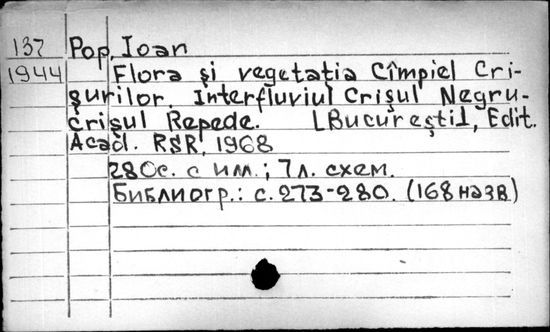 137 Pop, Ioan
1944 Flora şi vegetaţia Cîmpiel Cri-
şurilor. Interfluviul Crişul Negru-
Crişul Repede. [Bucureşti], Edit.
Acad. RSR, 1968
280с. с ил.; 7л. схем.
Библиогр.: с. 273-280. (168 назв)